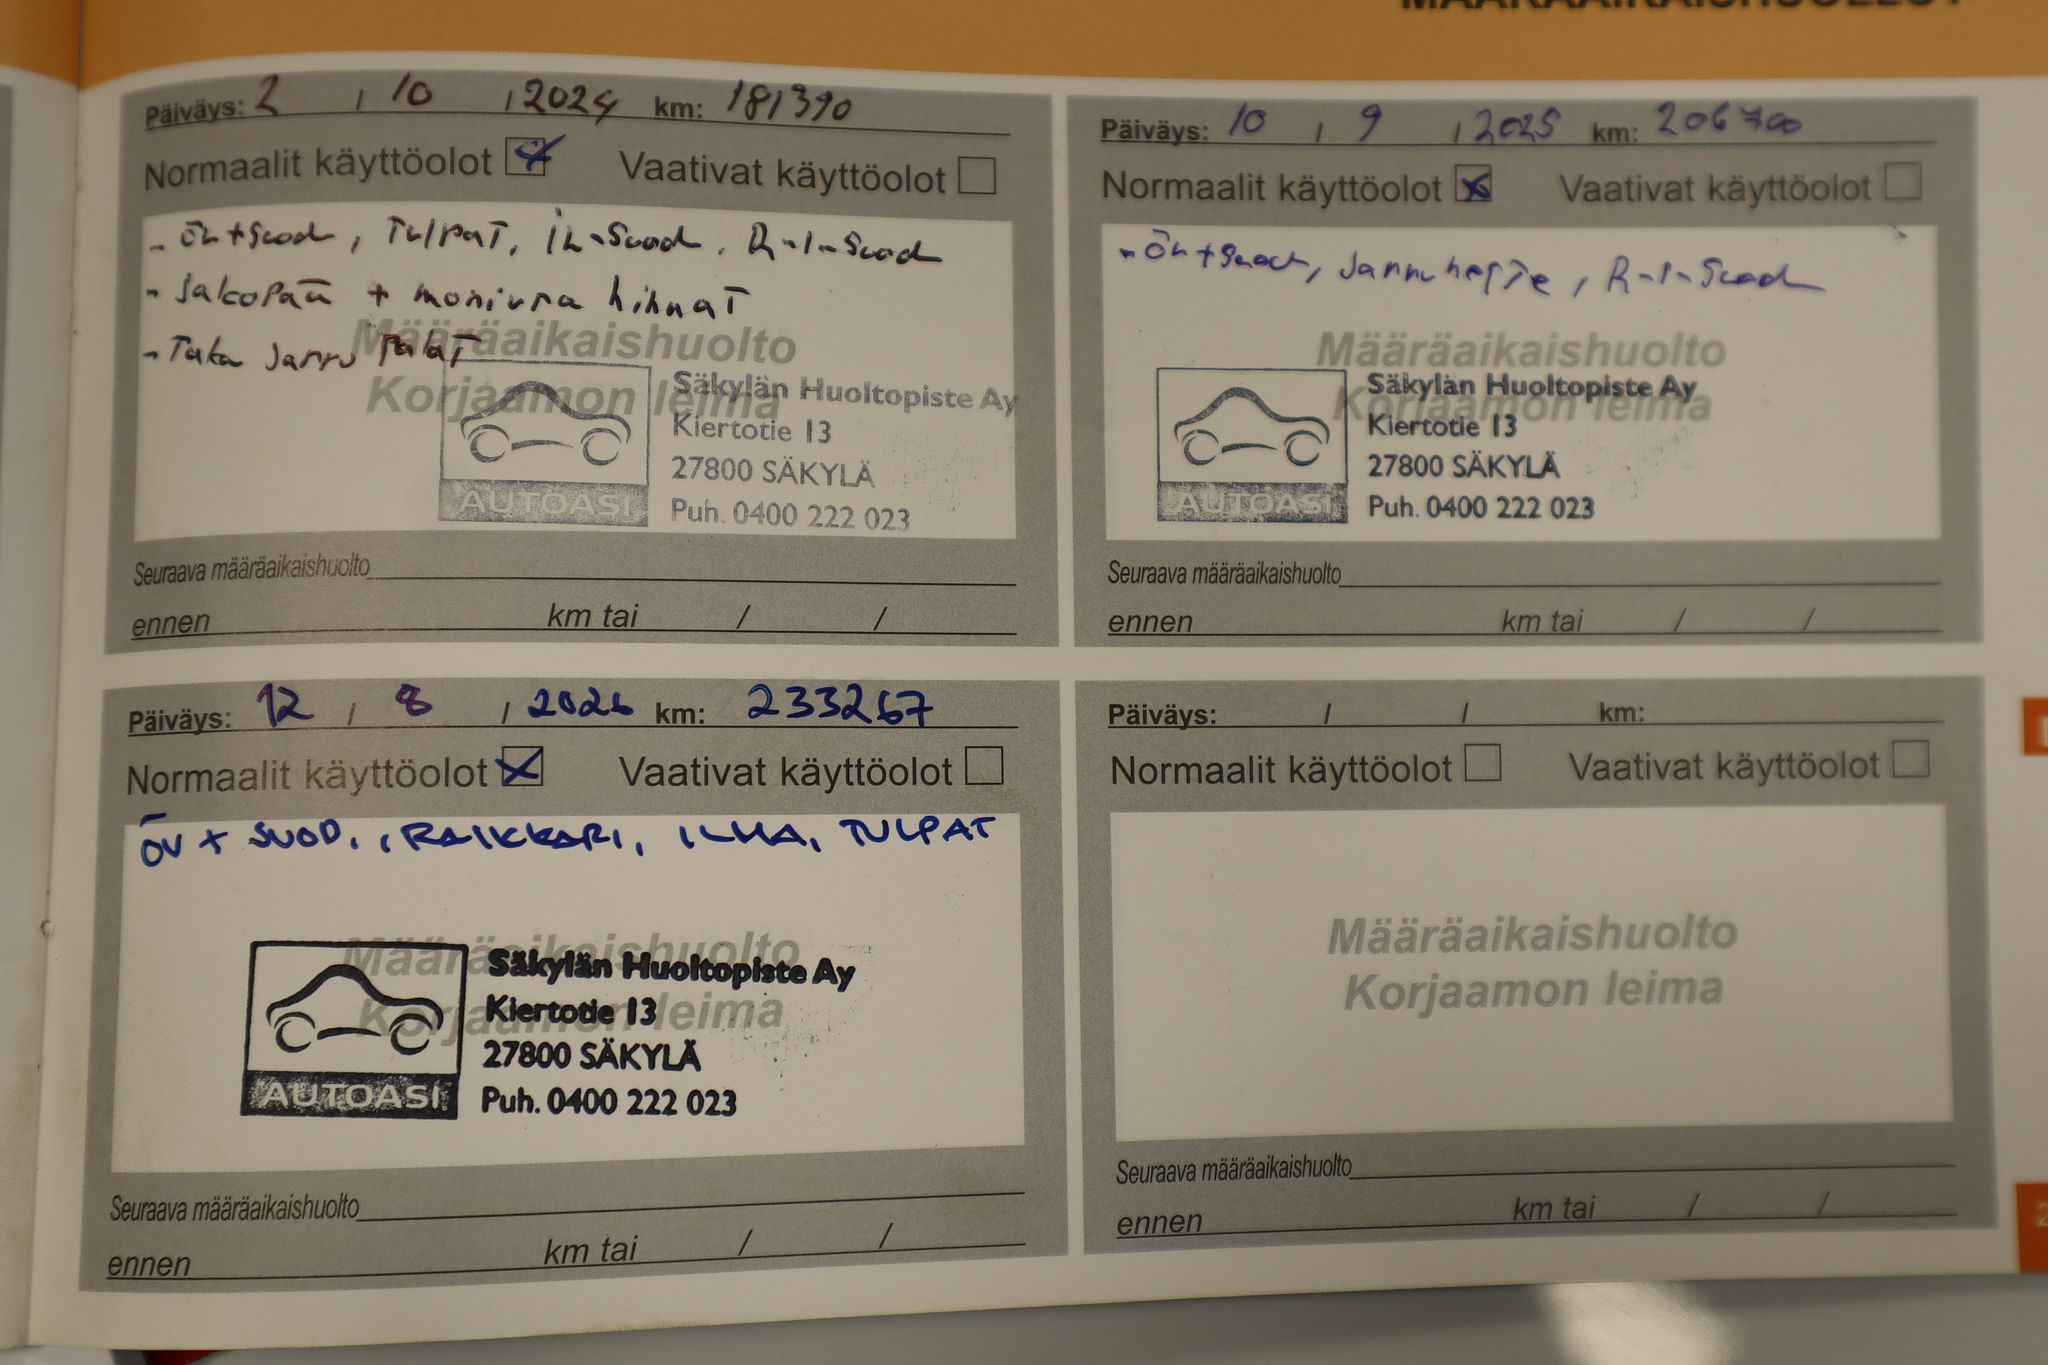 MÄÄRÄAIKAISHUOLLOT
Päiväys: 2 / 10 / 2024 km: 181390
Normaalit käyttöolot Vaativat käyttöolot
- öv+suod, Tulpat, iL-Suod, R-i-Suod
- Jakopää + moniura hihnat
- Taka Jarru Palat
Määräaikaishuolto
Korjaamon leima
Säkylän Huoltopiste Ay
Kiertotie 13
27800 SÄKYLÄ
Puh. 0400 222 023
AUTOASI
Seuraava määräaikaishuolto
ennen km tai / /
Päiväys: 10 / 9 / 2025 km: 206700
Normaalit käyttöolot Vaativat käyttöolot
- öv+suod, Jarruneste, R-i-Suod
Määräaikaishuolto
Korjaamon leima
Säkylän Huoltopiste Ay
Kiertotie 13
27800 SÄKYLÄ
Puh. 0400 222 023
AUTOASI
Seuraava määräaikaishuolto
ennen km tai / /
Päiväys: 12 / 8 / 2026 km: 233267
Normaalit käyttöolot Vaativat käyttöolot
ÖV + SUOD., RAIKKARI, ILMA, TULPAT
Määräaikaishuolto
Korjaamon leima
Säkylän Huoltopiste Ay
Kiertotie 13
27800 SÄKYLÄ
Puh. 0400 222 023
AUTOASI
Seuraava määräaikaishuolto
ennen km tai / /
Päiväys: / / km:
Normaalit käyttöolot Vaativat käyttöolot
Määräaikaishuolto
Korjaamon leima
Seuraava määräaikaishuolto
ennen km tai / /